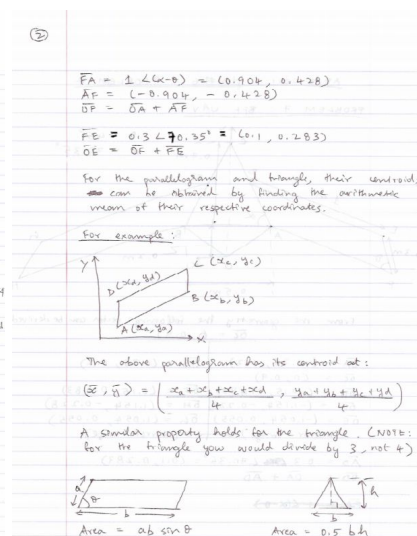 2
F̅A̅ = 1 ∠(α-θ) = (0.904, 0.428)
A̅F̅ = (-0.904, -0.428)
O̅F̅ = O̅A̅ + A̅F̅
F̅E̅ = 0.3 ∠70.35° = (0.1, 0.283)
O̅E̅ = O̅F̅ + F̅E̅
For the parallelogram and triangle, their centroid
can be obtained by finding the arithmetic
mean of their respective coordinates.
For example:
Y
C (xc, yc)
D (xd, yd)
B (xb, yb)
A (xa, ya)
X
The above parallelogram has its centroid at:
(x̅, y̅) = ( xa + xb + xc + xd / 4 , ya + yb + yc + yd / 4 )
A similar property holds for the triangle. (NOTE:
for the triangle you would divide by 3, not 4)
a
θ
b
h
b
Area = ab sin θ
Area = 0.5 bh